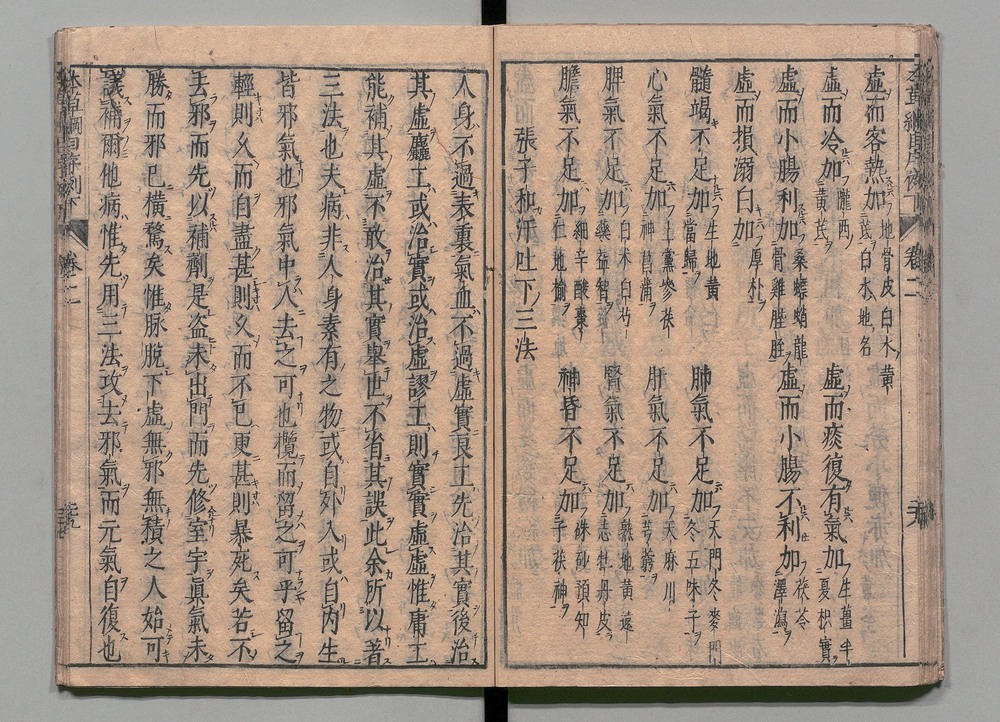 虛而客熱加地骨皮白朮黃芪白水地名
虛而冷加隴西黃芪 虛而痰復有氣加生薑半夏枳實
虛而小腸利加桑螵蛸龍骨雞膍胵 虛而小腸不利加茯苓澤瀉
虛而損溺白加厚朴
髓竭不足加生地黃當歸 肺氣不足加天門冬麥門冬五味子
心氣不足加上黨參茯神菖蒲 肝氣不足加天麻川芎藭
脾氣不足加白朮白芍藥益智 腎氣不足加熟地黃遠志牡丹皮
膽氣不足加細辛酸棗仁地榆 神昏不足加硃砂預知子茯神
張子和汗吐下三法
人身不過表裏氣血不過虛實良工先治其實後治
其虛麤工或治實或治虛謬工則實實虛虛惟庸工
能補其虛不敢治其實舉世不省其誤此余所以著
三法也夫病非人身素有之物或自外入或自內生
皆邪氣也邪氣中人去之可也攬而留之可乎留之
輕則久而自盡甚則久而不已更甚則暴死矣若不
去邪而先以補劑是盜未出門而先修室宇眞氣未
勝而邪已橫騖矣惟脉脫下虛無邪無積之人始可
議補爾他病惟先用三法攻去邪氣而元氣自復也